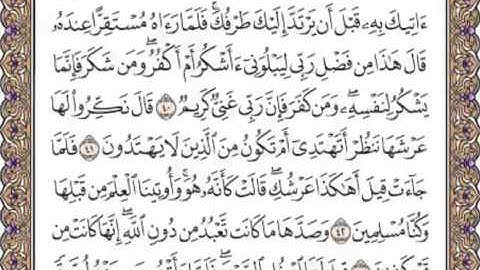 ءَاتِيكَ بِهِۦ قَبْلَ أَن يَرْتَدَّ إِلَيْكَ طَرْفُكَ ۚ فَلَمَّا رَءَاهُ مُسْتَقِرًّا عِندَهُۥ
قَالَ هَٰذَا مِن فَضْلِ رَبِّى لِيَبْلُوَنِىٓ ءَأَشْكُرُ أَمْ أَكْفُرُ ۖ وَمَن شَكَرَ فَإِنَّمَا
يَشْكُرُ لِنَفْسِهِۦ ۖ وَمَن كَفَرَ فَإِنَّ رَبِّى غَنِىٌّ كَرِيمٌ ٤٠ قَالَ نَكِّرُوا۟ لَهَا
عَرْشَهَا نَنظُرْ أَتَهْتَدِىٓ أَمْ تَكُونُ مِنَ ٱلَّذِينَ لَا يَهْتَدُونَ ٤١ فَلَمَّا
جَآءَتْ قِيلَ أَهَٰكَذَا عَرْشُكِ ۖ قَالَتْ كَأَنَّهُۥ هُوَ ۚ وَأُوتِينَا ٱلْعِلْمَ مِن قَبْلِهَا
وَكُنَّا مُسْلِمِينَ ٤٢ وَصَدَّهَا مَا كَانَت تَّعْبُدُ مِن دُونِ ٱللَّهِ ۖ إِنَّهَا كَانَتْ مِن